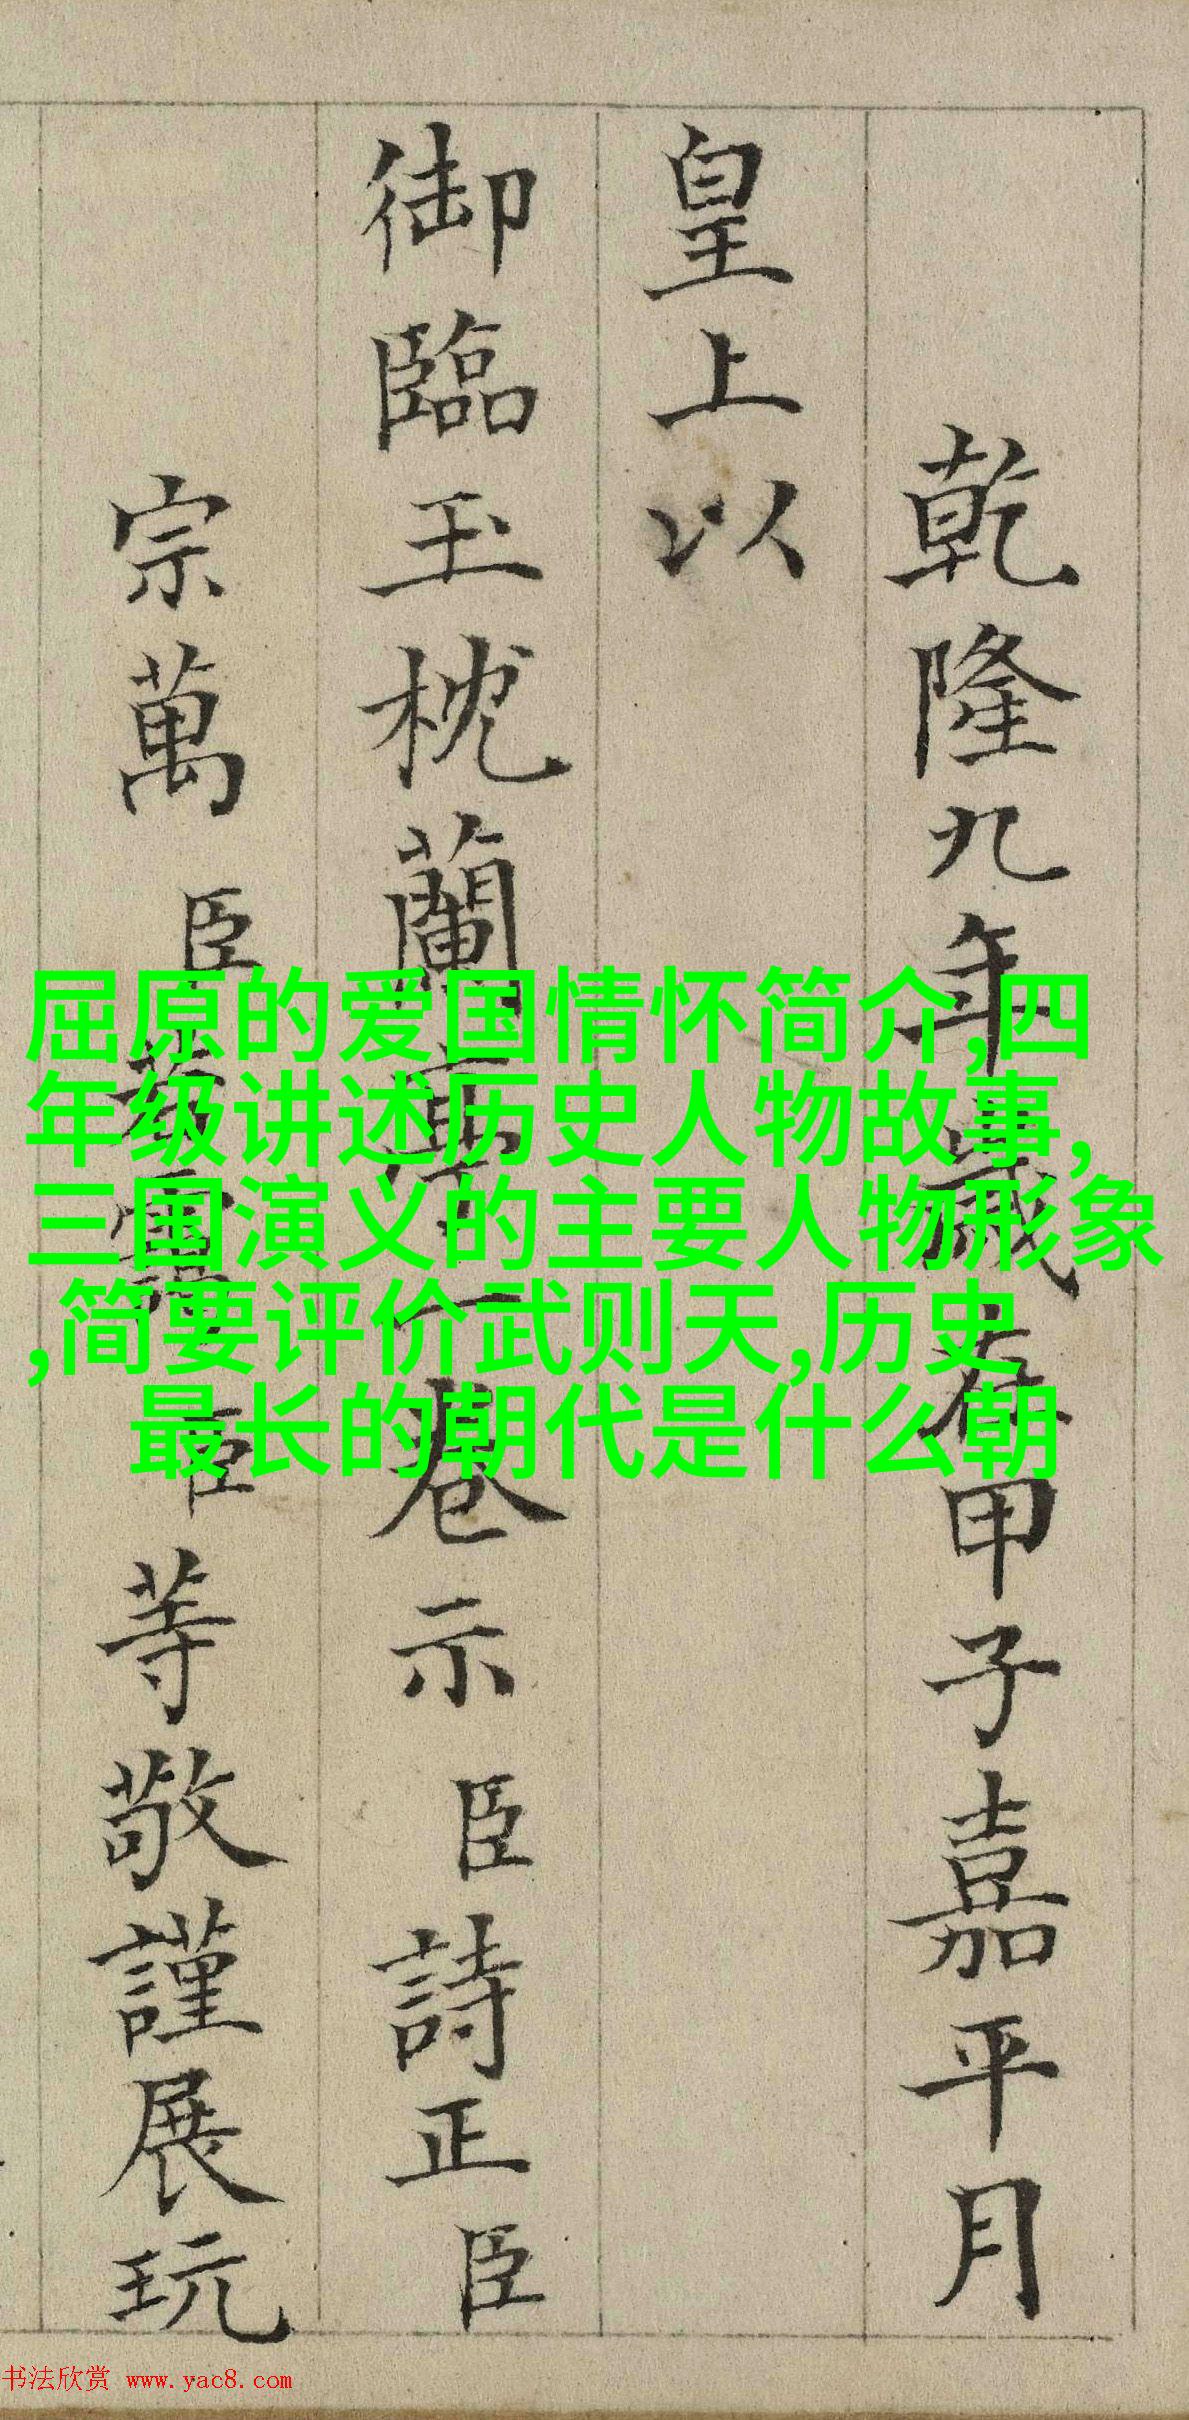 乾隆九年歲在甲子嘉平月
皇上以
御臨玉枕蘭亭一卷示臣詩正臣
宗萬臣若靄臣等敬謹展玩
屈原的爱国情怀简介,四
年级讲述历史人物故事,
三国演义的主要人物形象
,简要评价武则天,历史
最长的朝代是什么朝
书法欣赏 www.yac8.com